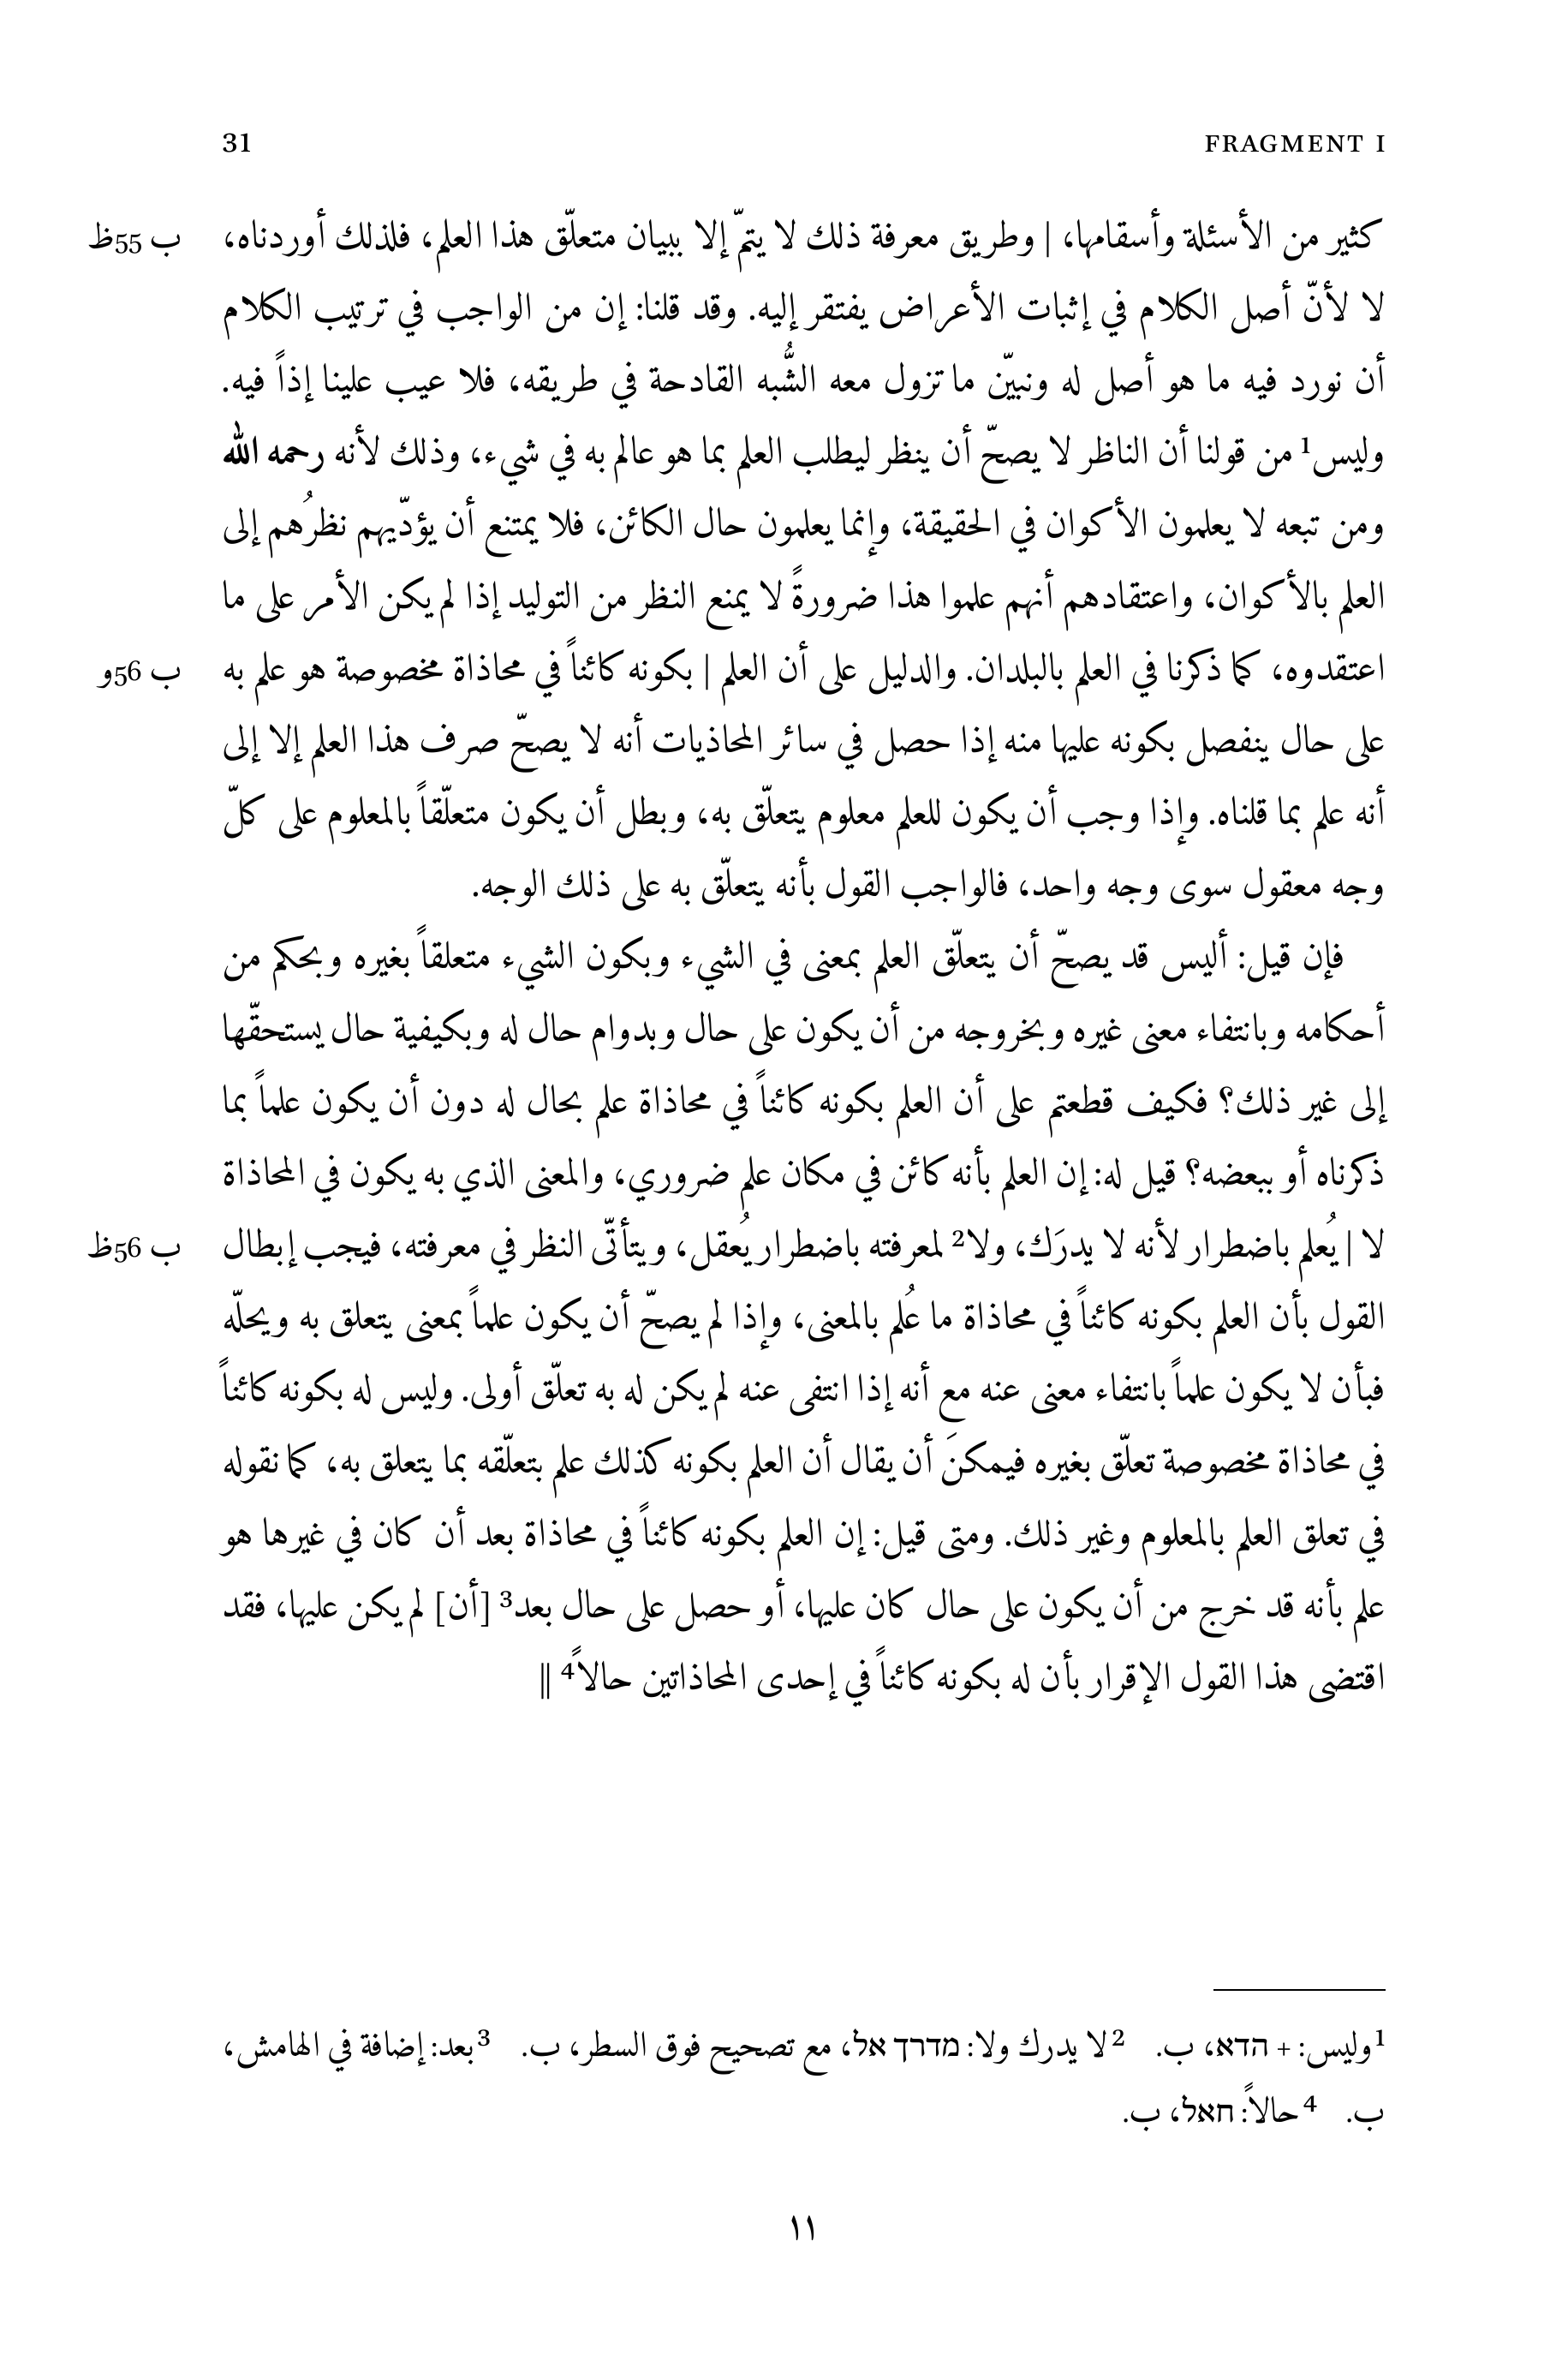 FRAGMENT I 31
كثير من الأسئلة وأسقامها، | وطريق معرفة ذلك لا يتمّ إلا ببيان متعلّق هذا العلم، فلذلك أوردناه، ب 55ظ
لا لأنّ أصل الكلام في إثبات الأعراض يفتقر إليه. وقد قلنا: إن من الواجب في ترتيب الكلام
أن نورد فيه ما هو أصل له ونبيّن ما تزول معه الشُّبه القادحة في طريقه، فلا عيب علينا إذاً فيه.
وليس¹ من قولنا أن الناظر لا يصحّ أن ينظر ليطلب العلم بما هو عالم به في شيء، وذلك لأنه رحمه الله
ومن تبعه لا يعلمون الأكوان في الحقيقة، وإنما يعلمون حال الكائن، فلا يمتنع أن يؤدّيهم نظرُهم إلى
العلم بالأكوان، واعتقادهم أنهم علموا هذا ضرورةً لا يمنع النظر من التوليد إذا لم يكن الأمر على ما
اعتقدوه، كما ذكرنا في العلم بالبلدان. والدليل على أن العلم | بكونه كائناً في محاذاة مخصوصة هو علم به ب 56و
على حال ينفصل بكونه عليها منه إذا حصل في سائر المحاذيات أنه لا يصحّ صرف هذا العلم إلا إلى
أنه علم بما قلناه. وإذا وجب أن يكون للعلم معلوم يتعلّق به، وبطل أن يكون متعلّقاً بالمعلوم على كلّ
وجه معقول سوى وجه واحد، فالواجب القول بأنه يتعلّق به على ذلك الوجه.
فإن قيل: أليس قد يصحّ أن يتعلّق العلم بمعنى في الشيء وبكون الشيء متعلقاً بغيره وبحكم من
أحكامه وبانتفاء معنى غيره وبخروجه من أن يكون على حال وبدوام حال له وبكيفية حال يستحقّها
إلى غير ذلك؟ فكيف قطعتم على أن العلم بكونه كائناً في محاذاة علم بحال له دون أن يكون علماً بما
ذكرناه أو ببعضه؟ قيل له: إن العلم بأنه كائن في مكان علم ضروري، والمعنى الذي به يكون في المحاذاة
لا | يُعلم باضطرار لأنه لا يدرَك، ولا² لمعرفته باضطرار يُعقل، ويتأتّى النظر في معرفته، فيجب إبطال ب 56ظ
القول بأن العلم بكونه كائناً في محاذاة ما عُلم بالمعنى، وإذا لم يصحّ أن يكون علماً بمعنى يتعلق به ويحلّه
فبأن لا يكون علماً بانتفاء معنى عنه مع أنه إذا انتفى عنه لم يكن له به تعلّق أولى. وليس له بكونه كائناً
في محاذاة مخصوصة تعلّق بغيره فيمكنَ أن يقال أن العلم بكونه كذلك علم بتعلّقه بما يتعلق به، كما نقوله
في تعلق العلم بالمعلوم وغير ذلك. ومتى قيل: إن العلم بكونه كائناً في محاذاة بعد أن كان في غيرها هو
علم بأنه قد خرج من أن يكون على حال كان عليها، أو حصل على حال بعد³ [أن] لم يكن عليها، فقد
اقتضى هذا القول الإقرار بأن له بكونه كائناً في إحدى المحاذاتين حالاً⁴ ||
¹ وليس: + הדא، ب. ² لا يدرك ولا: מדרך אל، مع تصحيح فوق السطر، ب. ³ بعد: إضافة في الهامش،
ب. ⁴ حالاً: חאל، ب.
١١